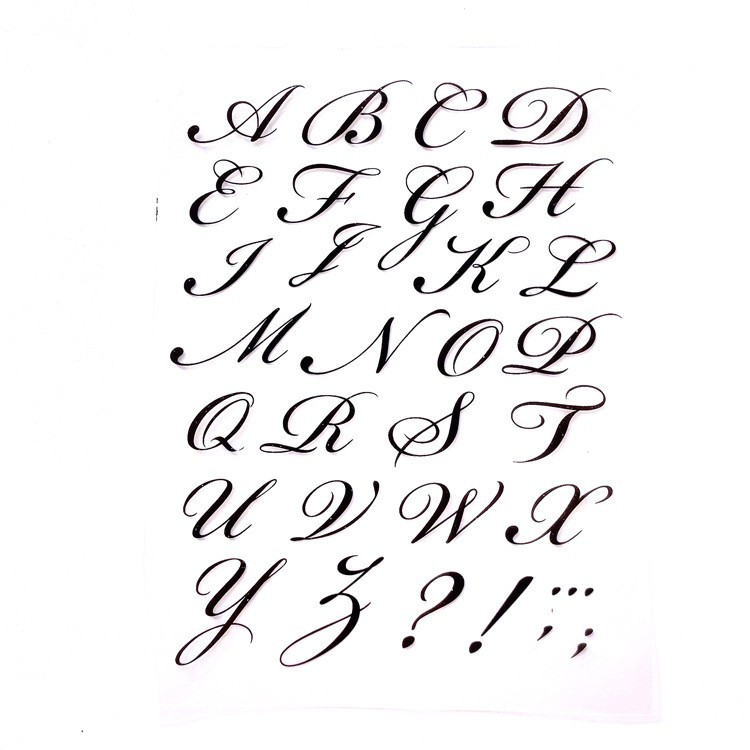 A B C D
E F G H
I J K L
M N O P
Q R S T
U V W X
Y Z ? !